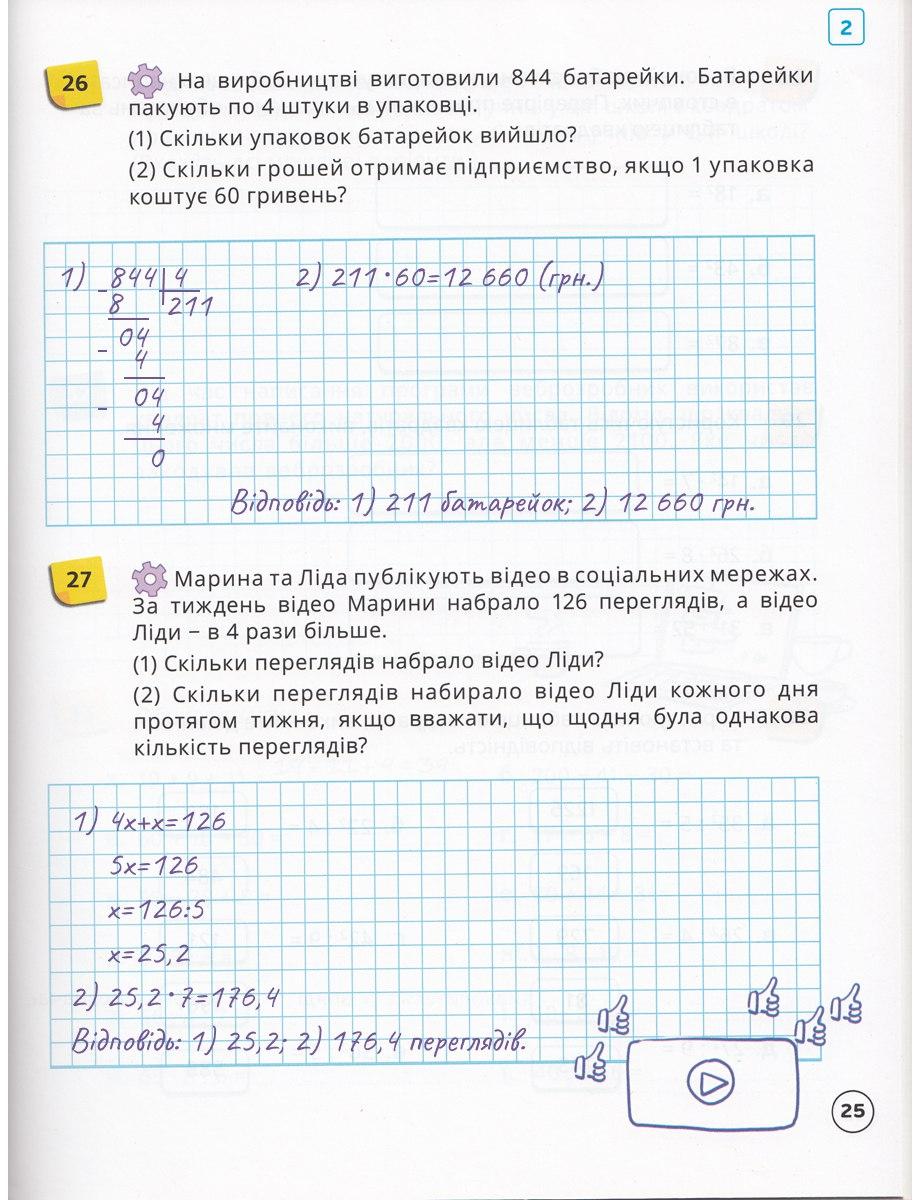 2
26
На виробництві виготовили 844 батарейки. Батарейки
пакують по 4 штуки в упаковці.
(1) Скільки упаковок батарейок вийшло?
(2) Скільки грошей отримає підприємство, якщо 1 упаковка
коштує 60 гривень?
1) 844 | 4 2) 211·60=12 660 (грн.)
8 211
04
4
04
4
0
Відповідь: 1) 211 батарейок; 2) 12 660 грн.
27
Марина та Ліда публікують відео в соціальних мережах.
За тиждень відео Марини набрало 126 переглядів, а відео
Ліди – в 4 рази більше.
(1) Скільки переглядів набрало відео Ліди?
(2) Скільки переглядів набирало відео Ліди кожного дня
протягом тижня, якщо вважати, що щодня була однакова
кількість переглядів?
1) 4x+x=126
5x=126
x=126:5
x=25,2
2) 25,2·7=176,4
Відповідь: 1) 25,2; 2) 176,4 переглядів.
25